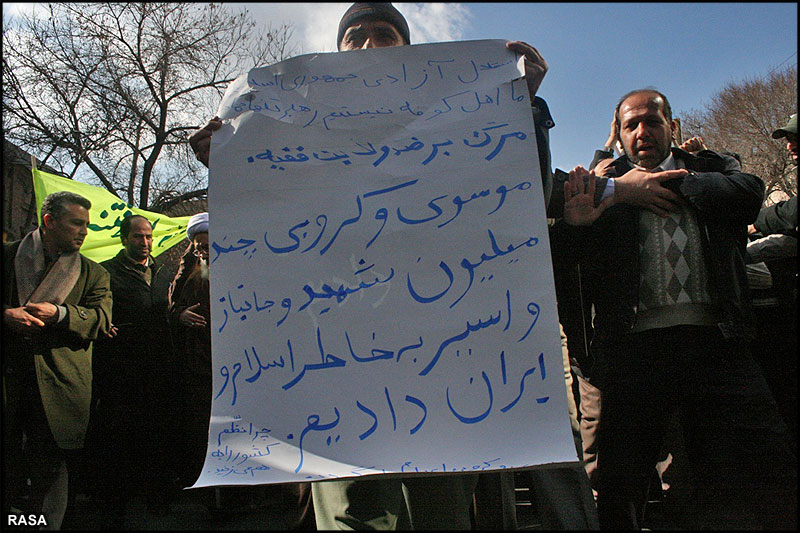 استقلال آزادی جمهوری اسلامی
ما اهل کوفه نیستیم رهبر
مرگ بر ضد ولایت فقیه.
موسوی و کروبی چند
میلیون شهید و جانباز
و اسیر به خاطر اسلام و
ایران دادیم.
چرا نظم
کشور را به
هم می‌زنید
RASA